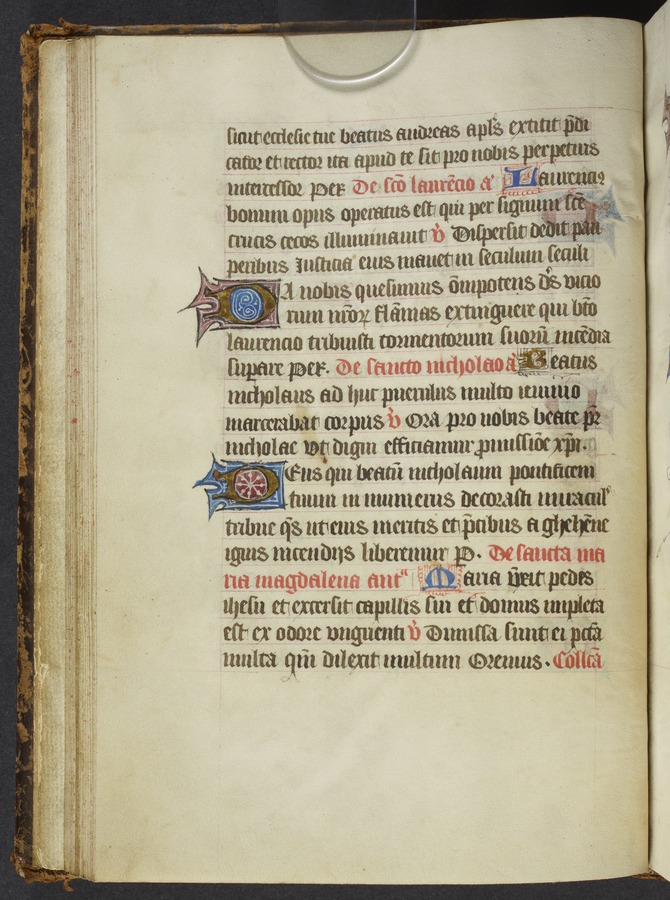 sicut ecclesie tue beatus andreas apl̄s extitit p̄di
cator et rector ita apud te sit pro nobis perpetuus
intercessor per De sc̄o laurēcio a͛ Laurencius
bonum opus operatus est qui per signum sc̄e
crucis cecos illuminauit v̄ Dispersit dedit pau
peribus Iusticia eius manet in seculum seculi
DA nobis quesumus ōmpotens ds̄ vicio
rum nr̄oꝝ flāmas extinguere qui bt̄o
laurencio tribuisti tormentorum suorū incēdia
suꝑare per. De sancto nicholao a͛ Beatus
nicholaus ad huc puerulus multo ieiunio
marcerabat corpus v̄ Ora pro nobis beate pr̄
nicholae Vt digni efficiamur ꝓmissiōe xp̄i.
DEus qui beatū nicholaum pontificem
tuum innumeris decorasti miracul᷒
tribue q̄s ut eius meritis et p̄cibus a ghehēne
ignis incendijs liberemur P. De sancta ma
ria magdalena ant᷒ Maria v̄xit pedes
ihesu et extersit capillis sui et domus impleta
est ex odore vnguenti v̄ Dimissa sunt ei pc̄ta
multa qm̄ dilexit multum Oremus. Coll̄ca